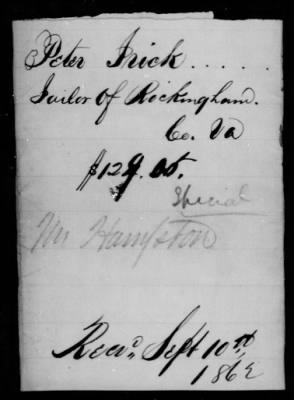 Peter Irick ......
Jailor of Rockingham.
Co. Va
$129.05.
Special
Mr Hampston
Recd. Sept 10th
1862